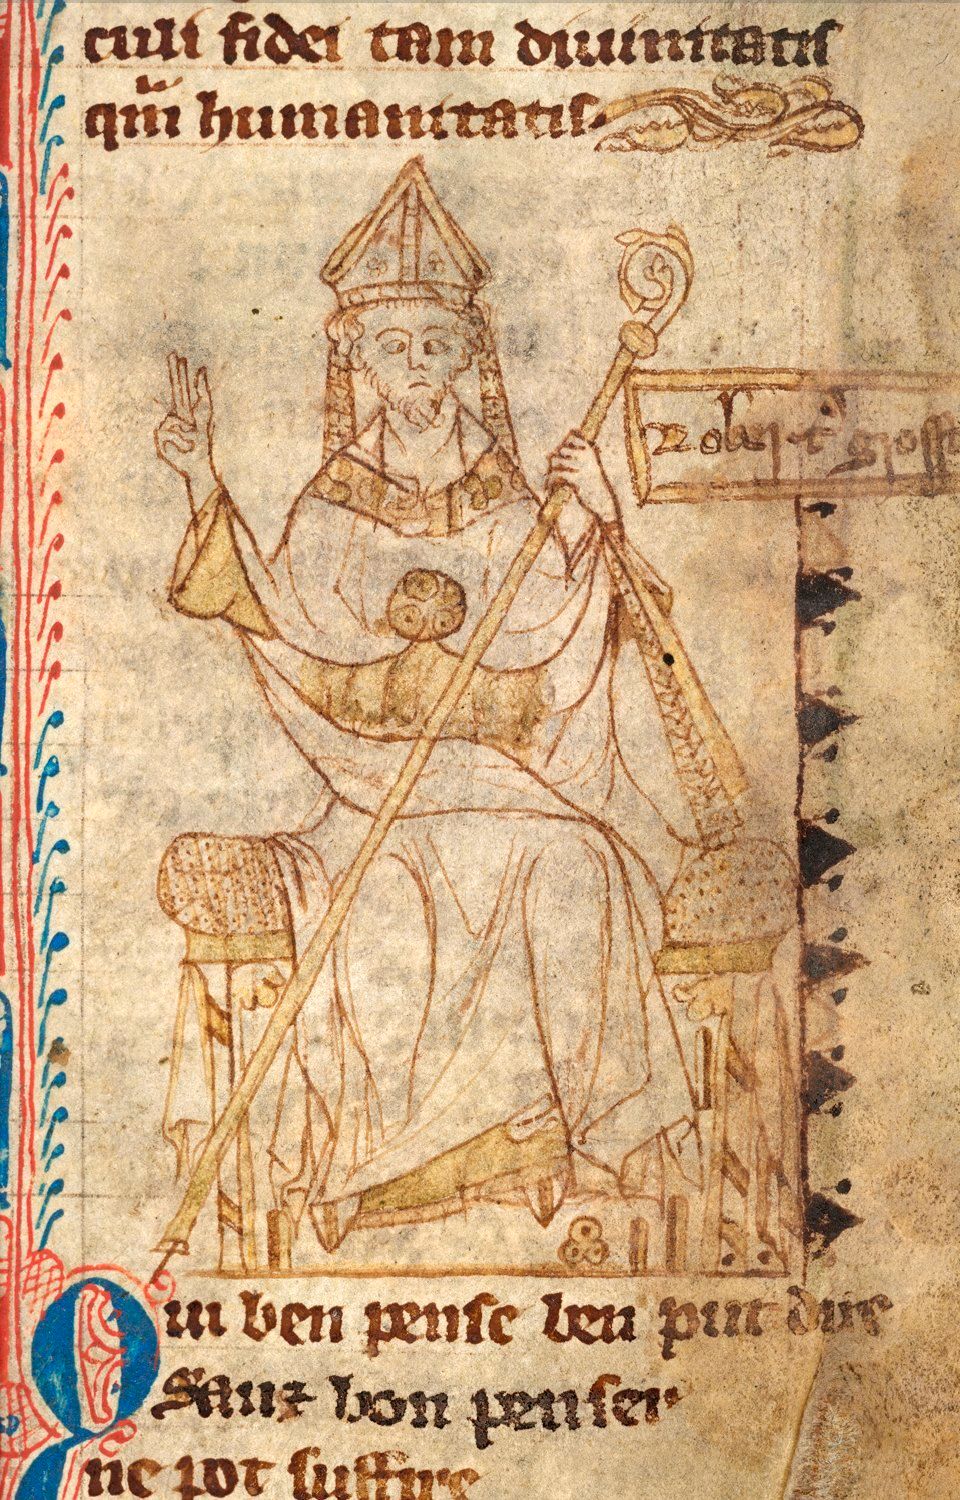 culi fidei tam diuinitatis
qm̄ humanitatis
Robt᾽ grosst
Qui ben pense ben puit dire
Sanz bon penser
ne pot suffire